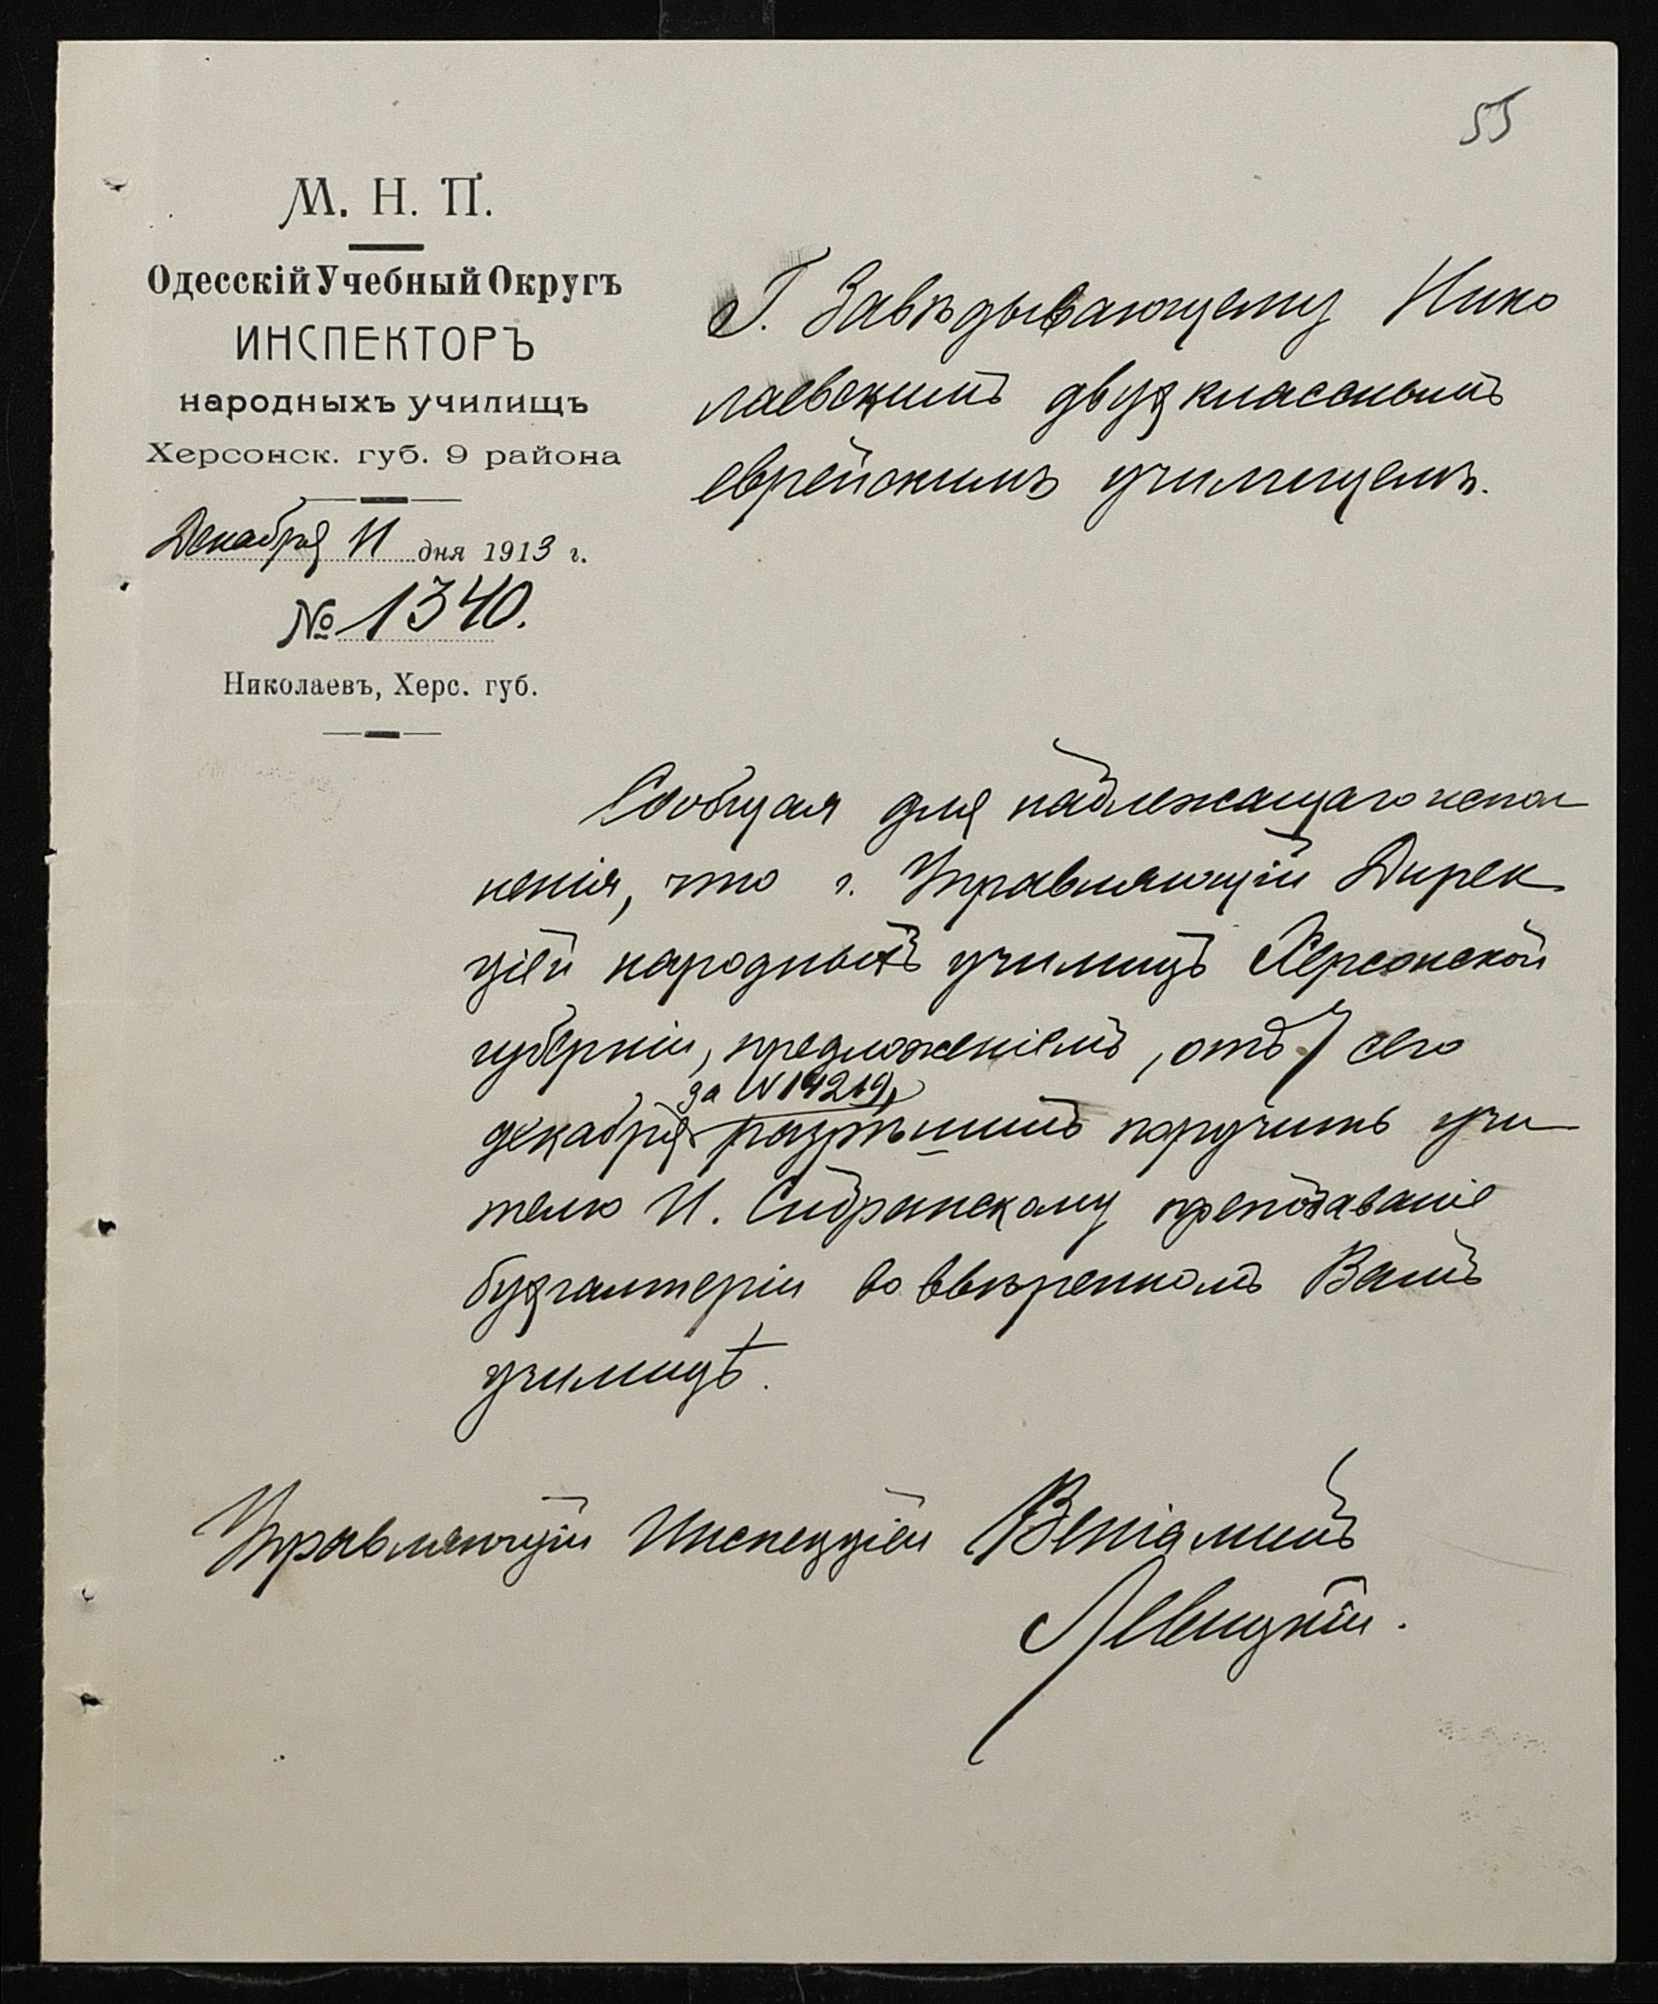 55
М. Н. П.
Одесскій Учебный Округъ
ИНСПЕКТОРЪ
народныхъ училищъ
Херсонск. губ. 9 района
Декабря 11 дня 1913 г.
№ 1340.
Николаевъ, Херс. губ.
Г. Завѣдывающему Нико
лаевскимъ двухкласснымъ
еврейскимъ училищемъ.
Сообщая для надлежащаго испол
ненія, что г. Управляющій Дирек
ціей народныхъ училищъ Херсонской
губерніи, предложеніемъ, отъ 7 сего
за №14219,
декабря разрѣшилъ поручить учи
телю И. преподаваніе
бухгалтеріи во ввѣренномъ Вамъ
училищѣ.
Управляющій Инспекціей Веніаминъ
Левицкій.